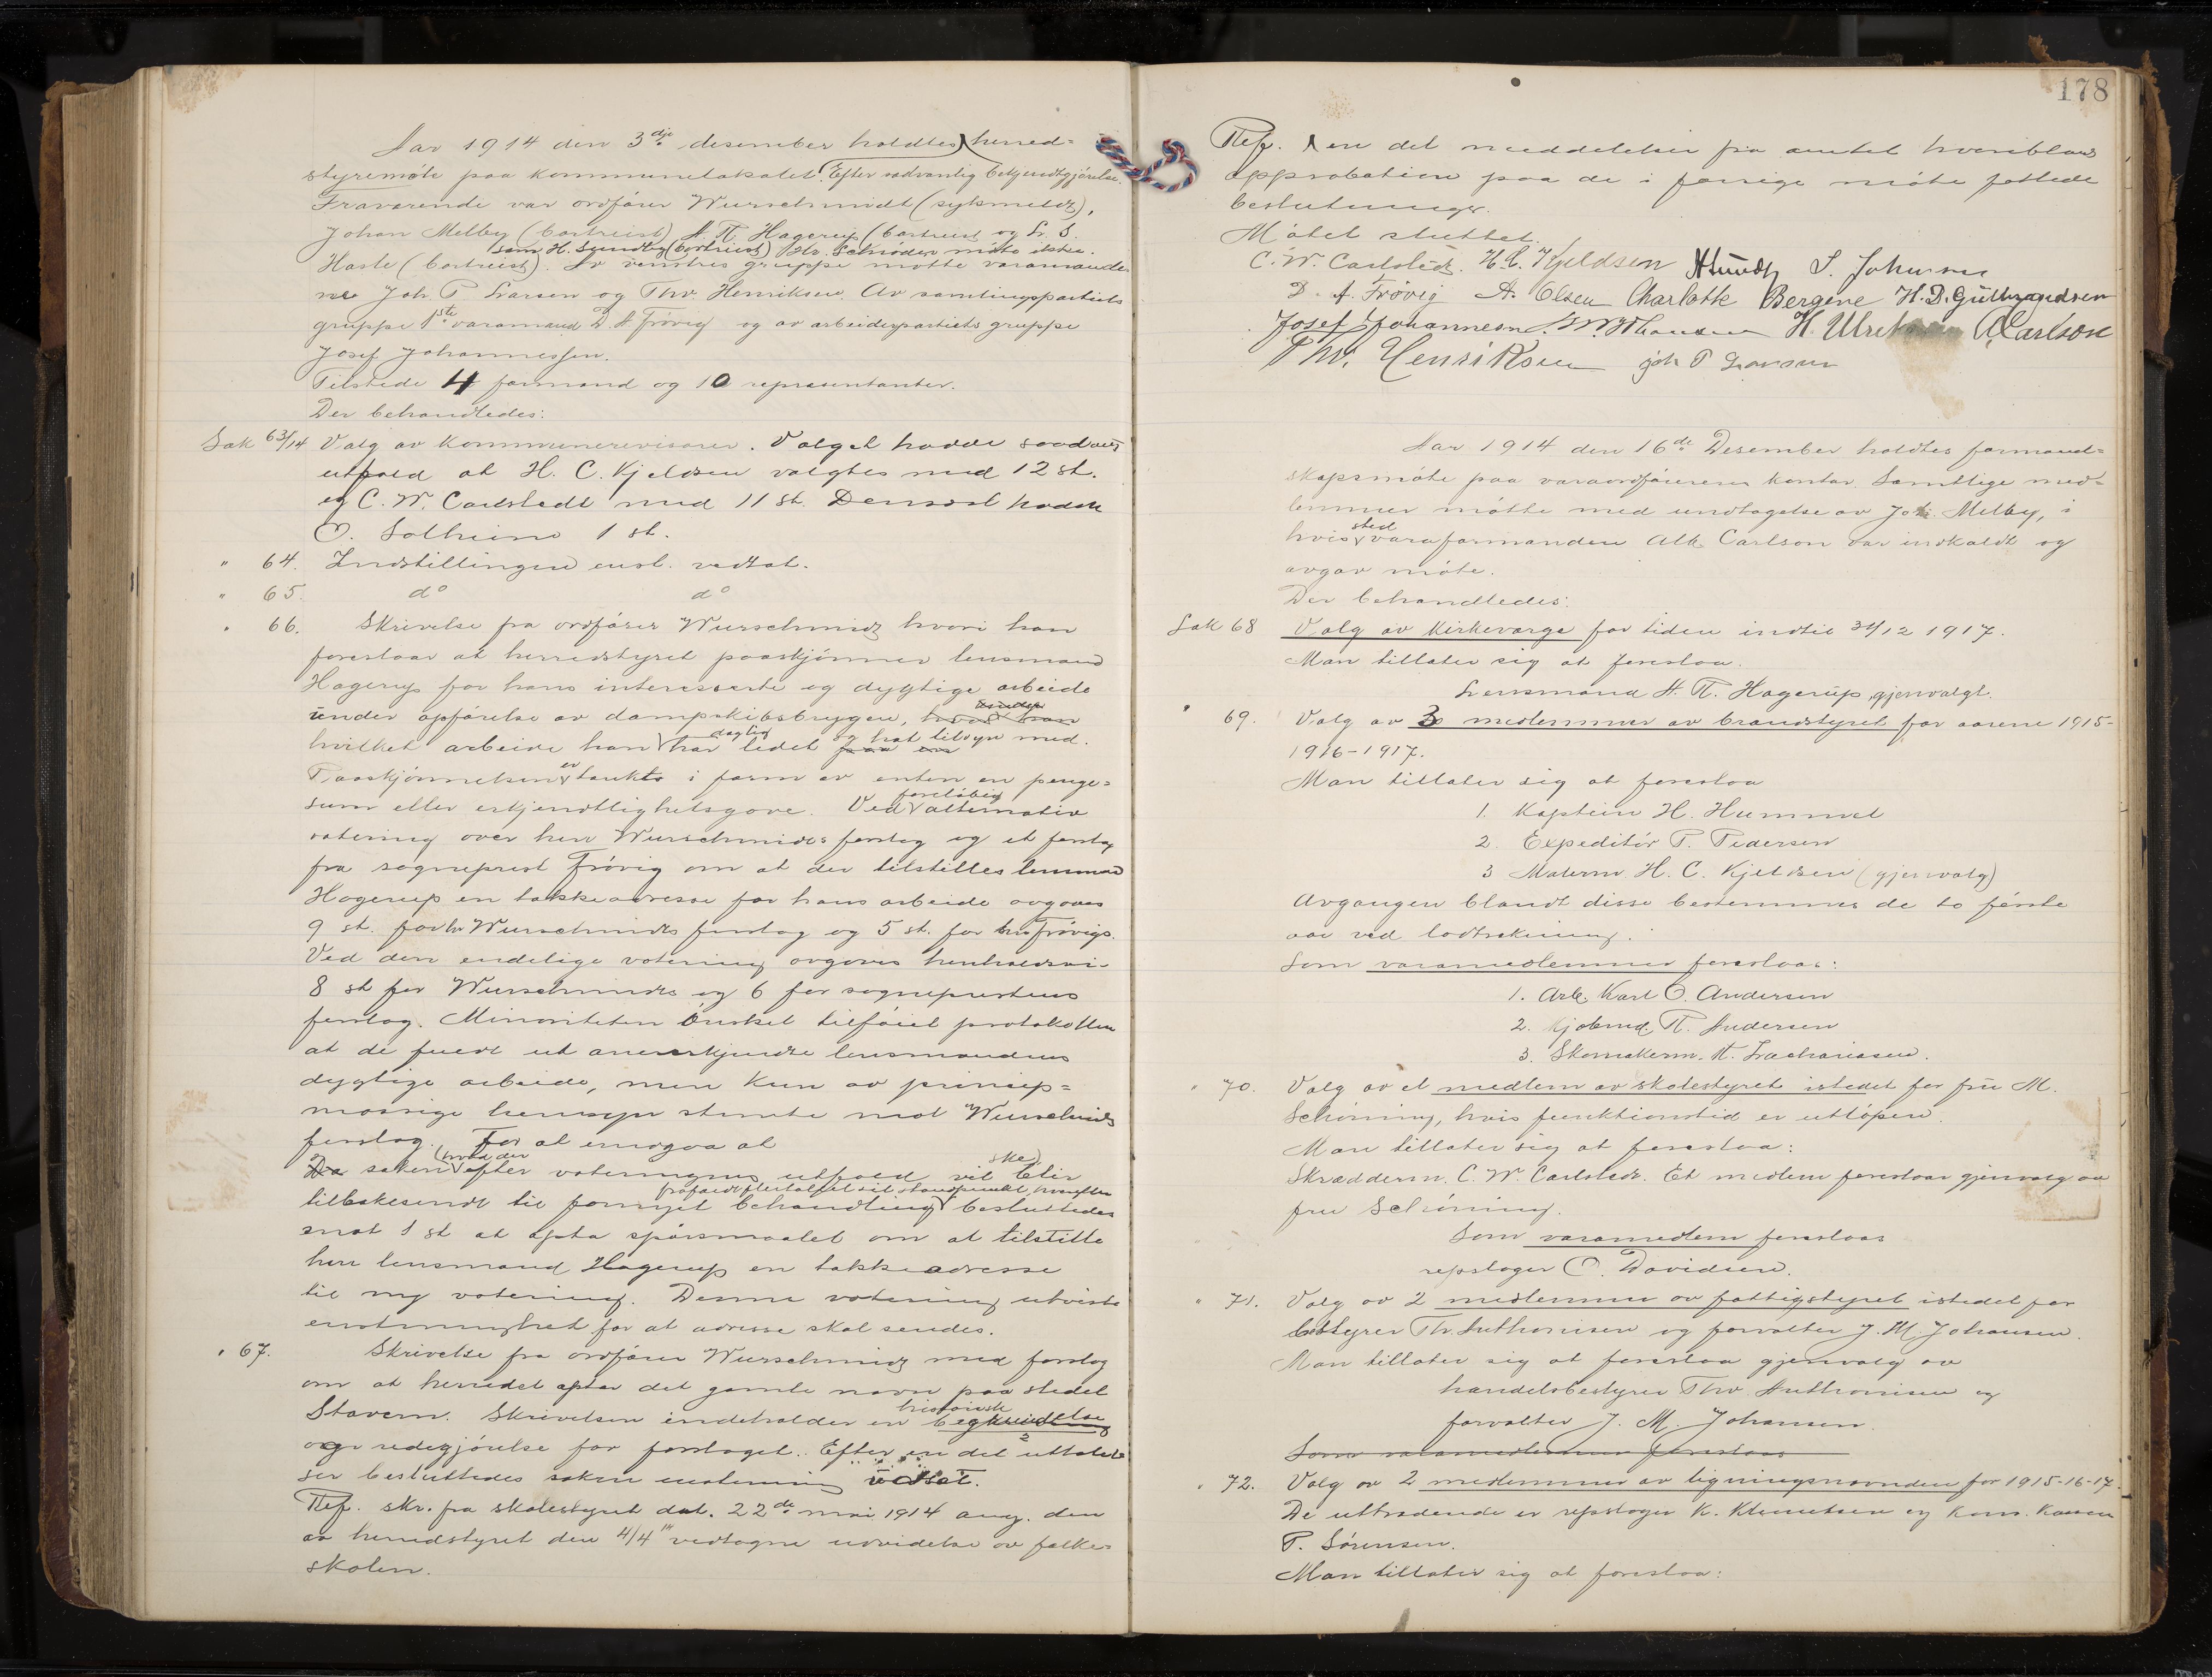 Aar 1914 den 3dje desember holdtes herred=
styremøte paa kommunelokalet. Efter sedvanlig bekjendtgjørelse.
Fraværende var ordfører Wurschmidt (sykmeldt),
Johan Melby (bortreist) A. N. Hagerup (bortreist og L. S.
samt H. Sundby (bortreist) Hr. Schrøder møtte ikke.
Hasle (bortreist). Av venstres gruppe møtte varamænde=
ne Joh. P. Larsen og Thv. Henriksen. Av samlingspartiets
gruppe 1ste varamand D. A. Frøvig og av arbeiderpartiets gruppe
Josef Johannessen.
Tilstede 4 formænd og 10 representanter.
Der behandledes:
Sak 63/14 Valg av kommunerevisorer. Valget hadde saadant
utfald at H. C. Kjeldsen valgtes med 12 st.
og C. W. Carlstedt med 11 st. Dernæst hadde
O. Solheim 1 st.
" 64. Indstillingen enst. vedtat.
" 65. do do
" 66. Skrivelse fra ordfører Wurschmidt hvori han
foreslaar at herredstyret paaskjønner lensmand
Hagerup for hans interesserte og dygtige arbeide
under opførelse av dampskibsbryggen, hvad han
hvilket arbeide han daglig har ledet og hat tilsyn med.
Paaskjønnelsen er tænkt i form av enten en penge=
sum eller erkjendtlighetsgave. Ved foreløbig alternativ
votering over herr Wurschmidts forslag og et forslag
fra sogneprest Frøvig om at der tilstilles lensmand
Hagerup en takkeadresse for hans arbeide avgaves
9 st. for hr Wurschmidts forslag og 5 st. for hr Frøvigs.
Ved den endelige votering avgaves henholdsvis
8 st for Wurschmidts og 6 for sogneprestens
forslag. Minoriteten ønsket tilføiet protokollen
at de fuldt ut anerkjendte lensmandens
dygtige arbeide, men kun av princip=
mæssige hensyn stemte mot Wurschmidts
forslag. For at undgaa at
saken hvad der efter voteringens utfald vil ske blir
tilbakesendt til fornyet behandling besluttedes
mot 1 st at opta spørsmaalet om at tilstille
herr lensmand Hagerup en takkeadresse
til ny votering. Denne votering utviste
enstemmighet for at adresse skal sendes.
" 67. Skrivelse fra ordfører Wurschmidt med forslag
om at herredet optar det gamle navn paa stedet
Stavern. Skrivelsen indeholder en historisk begrundelse
og redegjørelse for forslaget. Efter en del uttalel=
ser besluttedes saken enstemmig vedtat.
Ref. skr. fra skolestyret dat. 22de mai 1914 ang. den
av herredstyret den 4/4 14 vedtagne utvidelse av folke=
skolen.
178
Ref. en del meddelelser fra amtet hvoriblandt
approbation paa de i forrige møte fattede
beslutninger.
Møtet sluttet.
C. W. Carlstedt. H. C. Kjeldsen A Sundby L. Johnsen
D. A. Frøvig A. Olsen Charlotte Bergene H. D. Gulbrandsen
Josef Johannesen H. Ulrik A Carlson
Thv. Henriksen Joh P Larsen
Aar 1914 den 16de Desember holdtes formand=
skapsmøte paa varaordførerens kontor. Samtlige med=
lemmer møtte med undtagelse av Joh. Melby, i
hvis sted varaformanden Alb. Carlson var indkaldt og
avgav møte.
Der behandledes:
Sak 68 Valg av kirkeverge for tiden indtil 31/12 1917.
Man tillater sig at foreslaa.
Lensmand A. N. Hagerup, gjenvalgt.
" 69. Valg av 3 medlemmer av brandstyret for aarene 1915-
1916-1917.
Man tillater sig at foreslaa
1. Kaptein H. Hummel
2. Expeditør P. Pedersen
3 Malerm. H. C. Kjeldsen (gjenvalg)
Avgangen blandt disse bestemmes de to første
aar ved lodtrækning.
Som varamedlemmer foreslaaes:
1. Arb. Karl O. Andersen
2. Kjøbmd. N. Andersen
3. Skomakerm. A. Zachariassen.
" 70. Valg av et medlem av skolestyret istedet for fru M.
Schøning, hvis funktionstid er utløpen.
Man tillater sig at foreslaa:
Skrædderm. C. W. Carlstedt. Et medlem foreslaar gjenvalg av
fru Schøning.
Som varamedlem foreslaaes
repslager O. Davidsen.
" 71. Valg av 2 medlemmer av fattigstyret istedet for
bestyrer Th. Anthonisen og forvalter J. M. Johansen.
Man tillater sig at foreslaa gjenvalg av
handelsbestyrer Thv Anthonisen og
forvalter J. M. Johansen.
Som varamedlemmer foreslaaes
" 72. Valg av 2 medlemmer av ligningsnævnden for 1915-16-17.
De uttrædende er repslager K. Klemetsen og kom. kasser
P. Sørensen.
Man tillater sig at foreslaa: